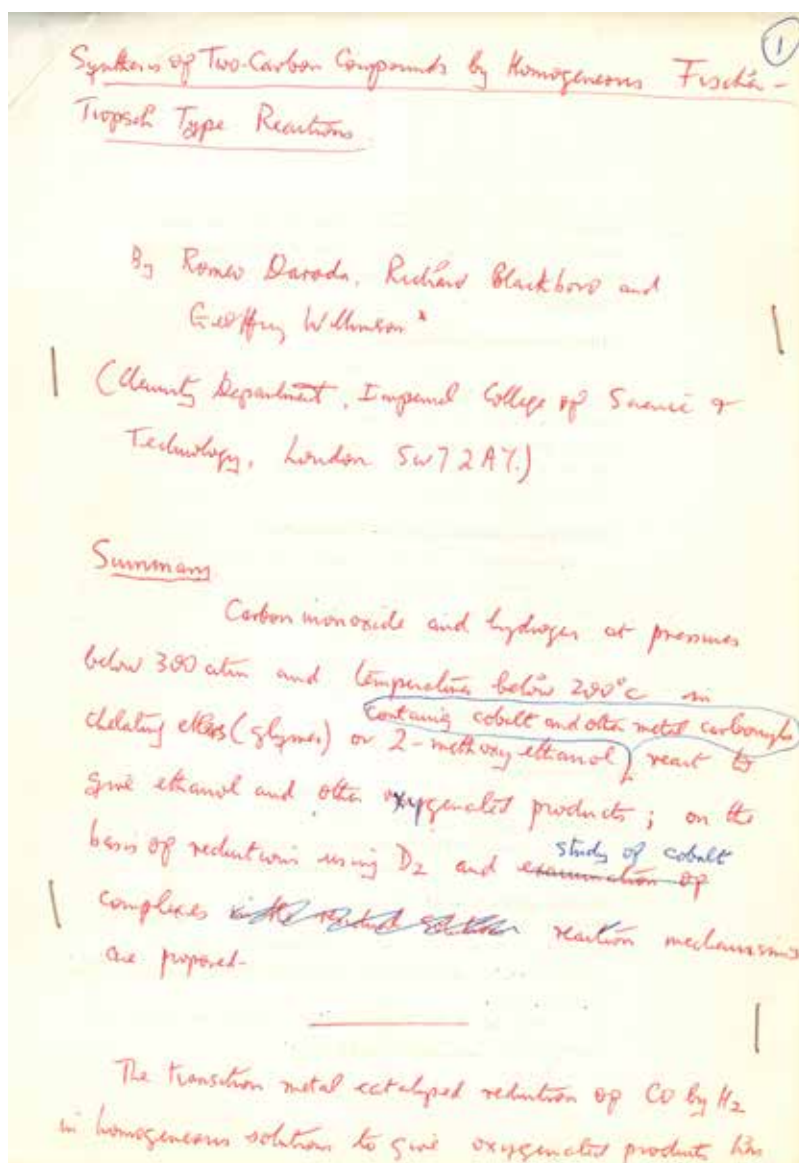 1
Synthesis of Two-Carbon Compounds by Homogeneous Fischer-
Tropsch Type Reactions.
By Romeo Daroda, Richard Blackborow and
Geoffrey Wilkinson*
(Chemistry Department, Imperial College of Science &
Technology, London SW7 2AY.)
Summary
Carbon monoxide and hydrogen at pressures
below 300 atm and temperatures below 200°C in
containing cobalt and other metal carbonyls
chelating ethers (glymes) or 2-methoxy ethanol react to
give ethanol and other oxygenated products; on the
study of cobalt
basis of reductions using D2 and examination of
complexes reaction mechanisms
are proposed.
The transition metal catalysed reduction of CO by H2
in homogeneous solutions to give oxygenated products has